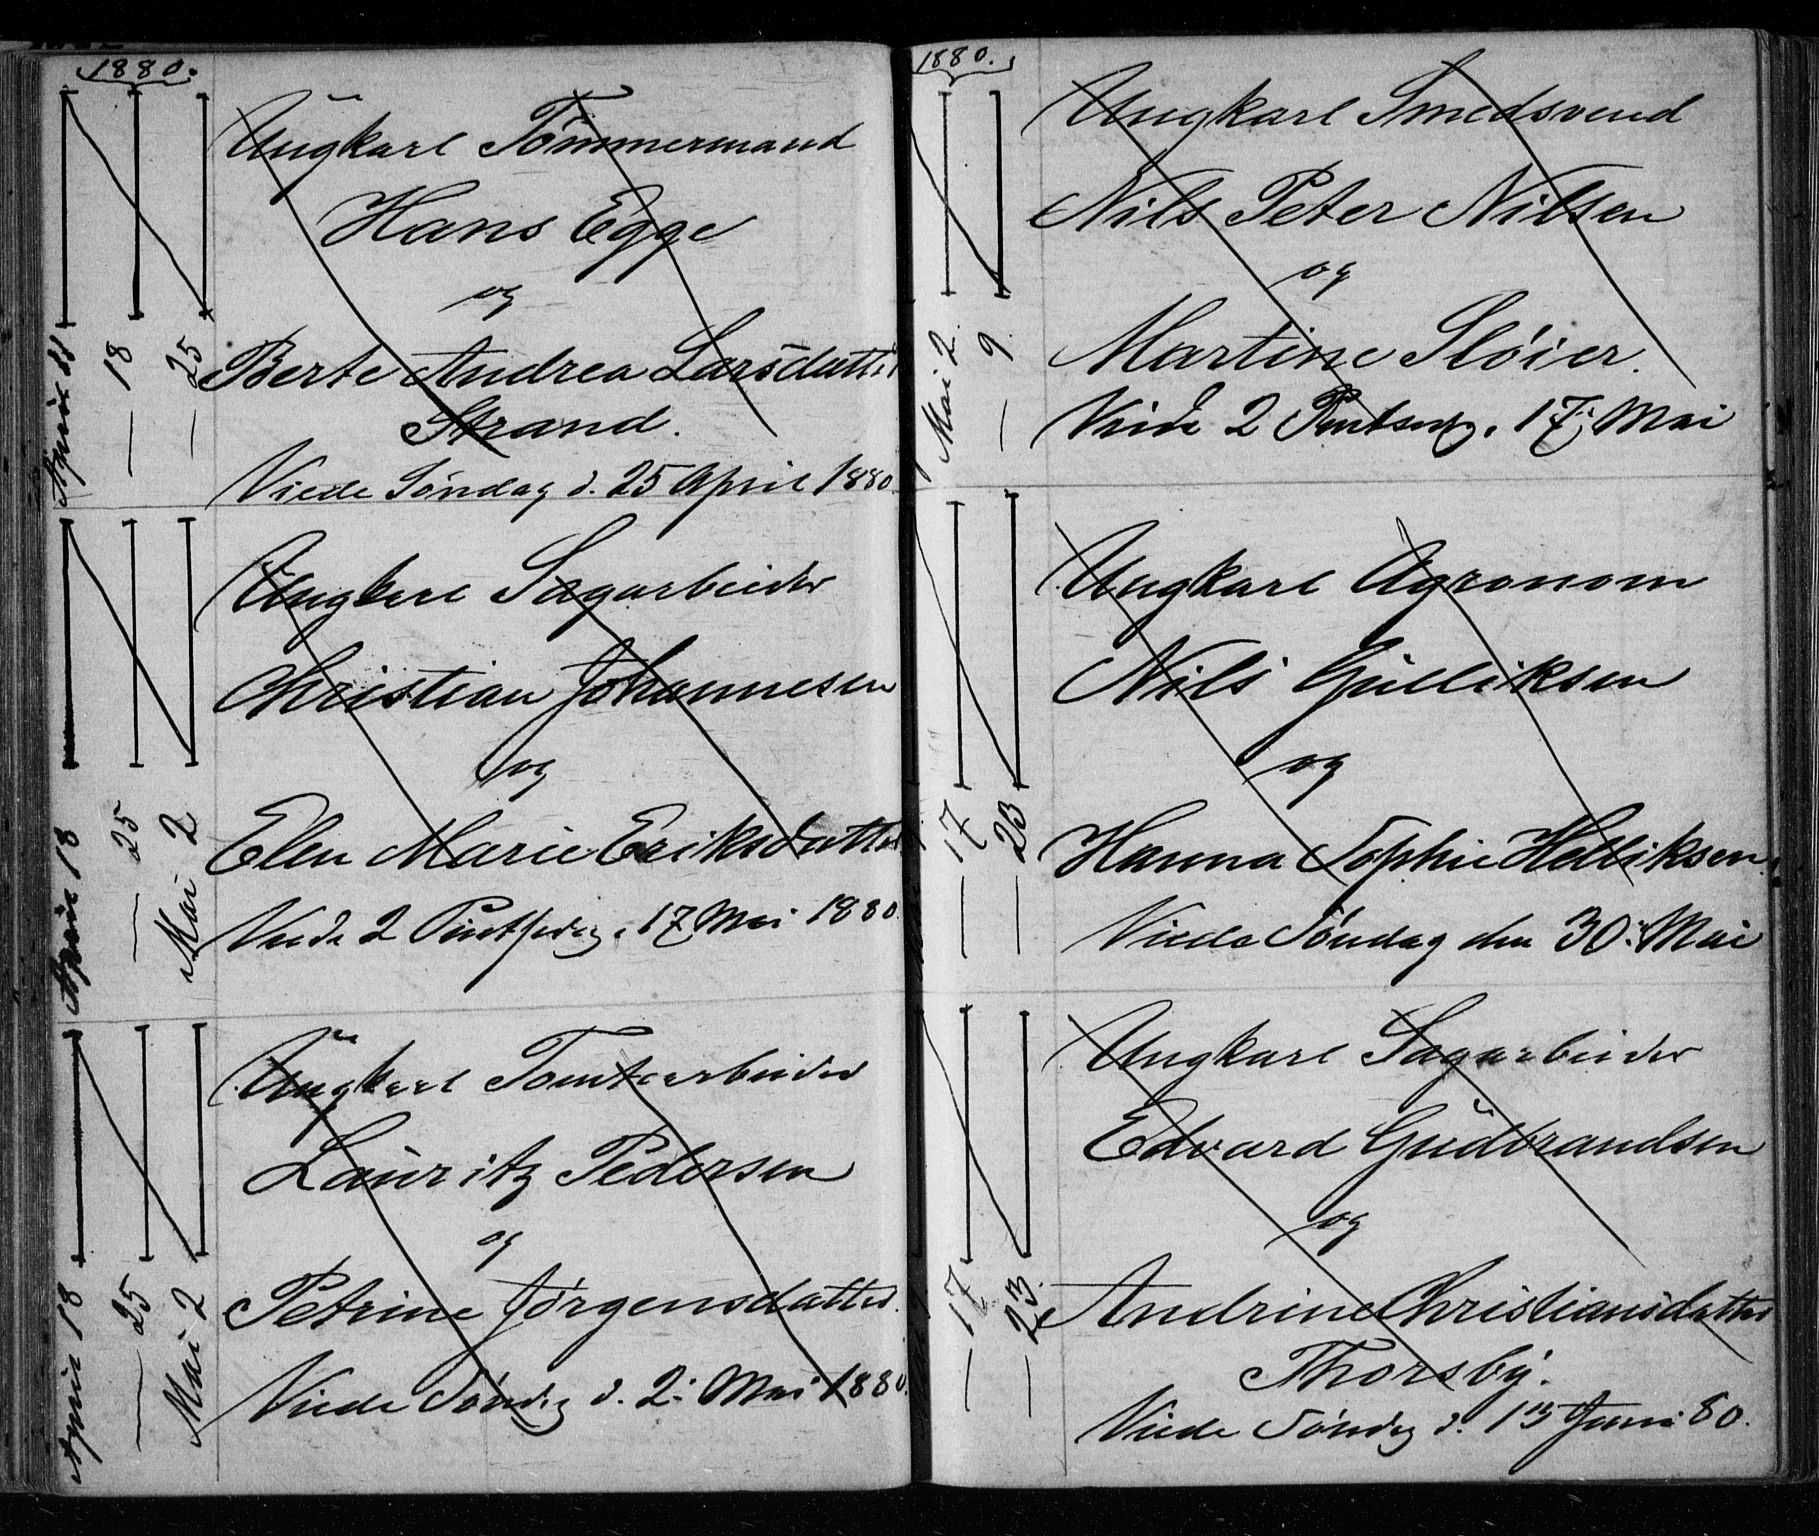 1880.
April 11
— 18
— 25
Ungkarl Tömmermand
Hans Egge
og
Berte Andrea Larsdatter
Strand.
Viede Søndag d. 25 April 1880.
April 18
— 25
Mai 2
Ungkarl Sagarbeider
Christian Johannesen
og
Elen Marie Eriksdatter
Viede 2 Pintsedag, 17 Mai 1880.
April 18
— 25
Mai 2
Ungkarl Tomtearbeider
Lauritz Pedersen
og
Petrine Jørgensdatter.
Viede Søndag d. 2: Mai 1880.
1880.
Mai 2.
— 9.
Ungkarl Smedsvend
Nils Peter Nilsen
og
Martine Sløier.
Viede 2 Pintsedg. 17: Mai
— 17
— 23
Ungkarl Agronom
Nils Gulliksen
og
Hanna Sophie Helliksen.
Viede Søndag den 30: Mai
— 17
— 23.
Ungkarl Sagarbeider
Edvard Gudbrandsen
og
Andrine Christiansdatter
Thorsby.
Viede Søndag d. Juni 80.